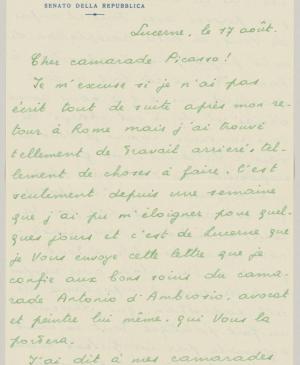 SENATO DELLA REPUBBLICA
Lucerne, le 17 août.
Cher camarade Picasso!
Je m'excuse si je n'ai pas
écrit tout de suite après mon re-
tour à Rome mais j'ai trouvé
tellement de travail arrieré tel-
lement de choses à faire. C'est
seulement depuis une semaine
que j'ai pu m'éloigner pour quel-
ques jours et c'est de Lucerne que
je Vous envoye cette lettre que je
confie aux bons soins du cama-
rade Antonio d'Ambrosio, avocat
et peintre lui même, qui Vous la
portera.
J'ai dit à mes camarades